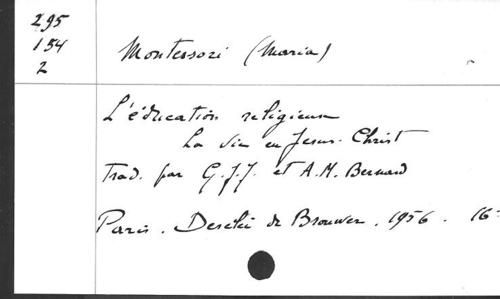 295
154
2
Montessori (Maria)
L'éducation religieuse
La vie en Jesus-Christ
Trad. par G.J.J. et A.M. Bernard
Paris. Desclée de Brouwer. 1956. 16